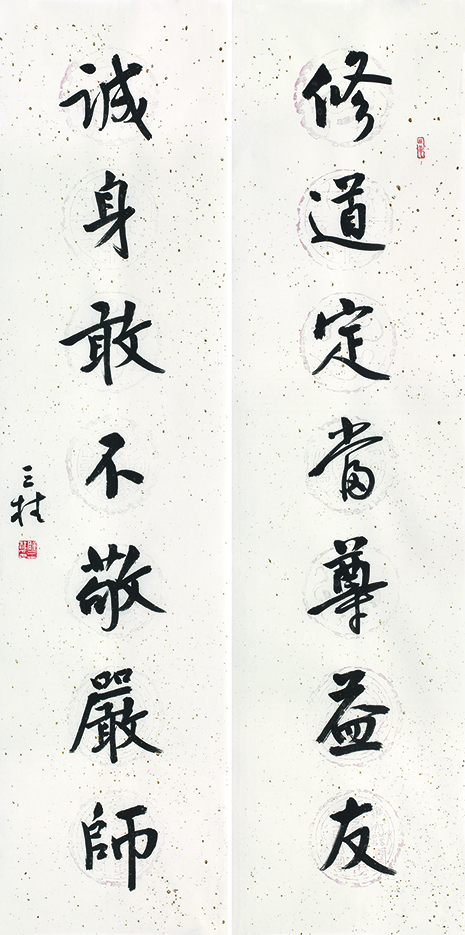 修道定當尊益友
誠身敢不敬嚴師
三柱